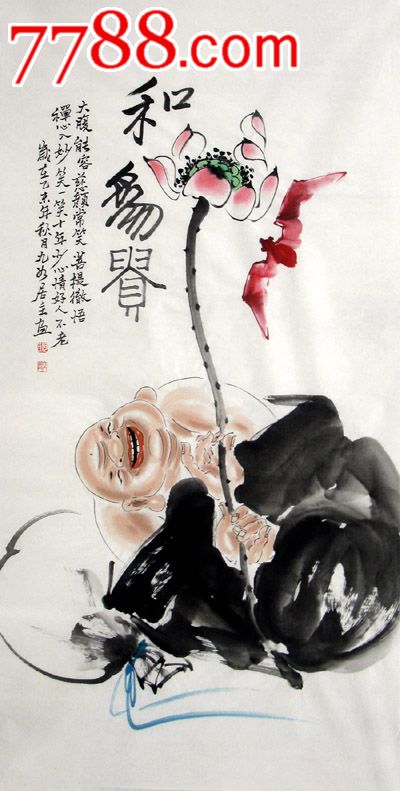 7788.com
和
為
貴
大腹能容慈顏常笑菩提徹悟
禪心入妙笑一笑十年少心情好人不老
歲在乙未年秋月九如居主画